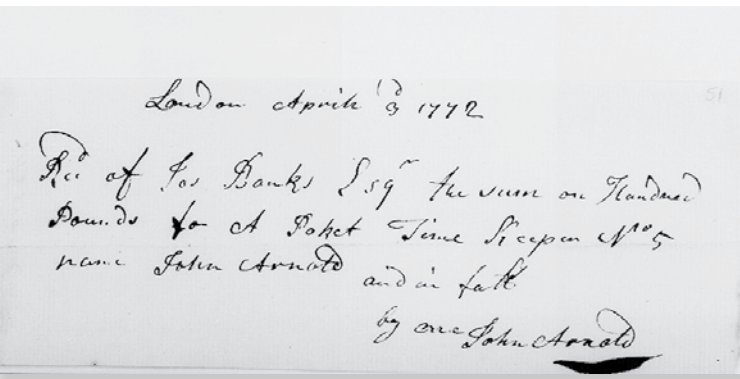 London April 3d 1772
Recd of Jos Banks Esqr the sum on Hundred
Pounds fo A Poket Time Keeper No 5
name John Arnold and in full
by me John Arnold
51